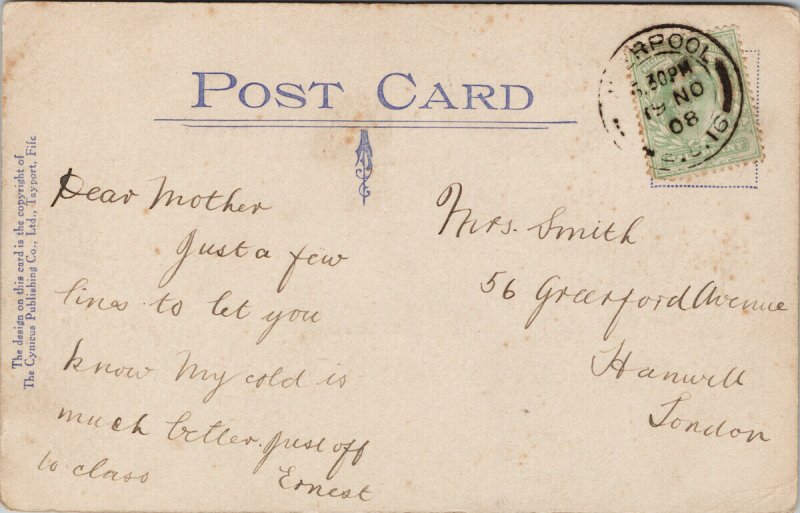 POST CARD
The design on this card is the copyright of
The Cynicus Publishing Co., Ltd., Tayport, Fife
Dear Mother
Just a few
lines to let you
know My cold is
much better. Just off
to class
Ernest
Mrs. Smith
56 Greenford Avenue
Hanwell
London
ERPOOL
.30PM
19 NO
08
16